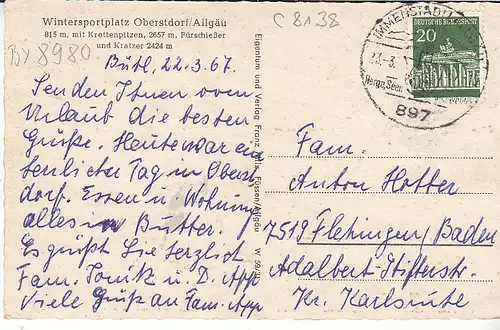 Wintersportplatz Oberstdorf/Allgäu
815 m, mit Krottenspitzen, 2657 m, Fürschießer
und Kratzer 2424 m
BY 8980
C 8138
Bühl, 22.3.67.
Senden Ihnen vom
Urlaub die besten
Grüße. Heute war ein
herrlicher Tag in Oberst
dorf. Essen u. Wohnung
alles in Butter.
Es grüßt Sie herzlich
Fam. u. D. App
Viele Grüße an Fam. App
Eigentum und Verlag Franz Füssen/Allgäu
IMMENSTADT
897
DEUTSCHE BUNDESPOST
20
Fam.
Anton Hotter
7519 Flehingen/Baden
Adalbert-Stifterstr.
Kr. Karlsruhe